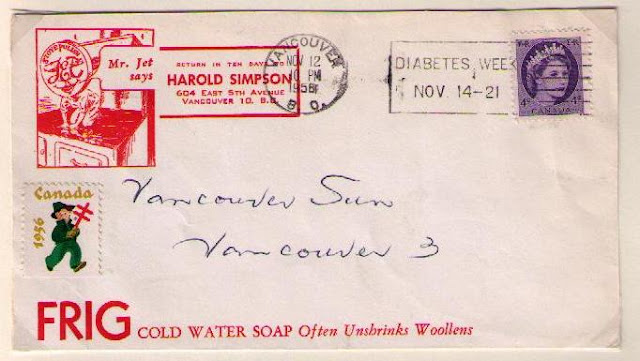 STOVE POLISH
Jet
Mr. Jet
says
RETURN IN TEN DAYS TO
HAROLD SIMPSON
604 EAST 5TH AVENUE
VANCOUVER 10, B.C.
VANCOUVER
NOV 12
PM
1956
B. C.
DIABETES WEEK
NOV. 14-21
4¢ 4¢
CANADA
Canada
1956
Vancouver Sun
Vancouver 3
FRIG COLD WATER SOAP Often Unshrinks Woollens